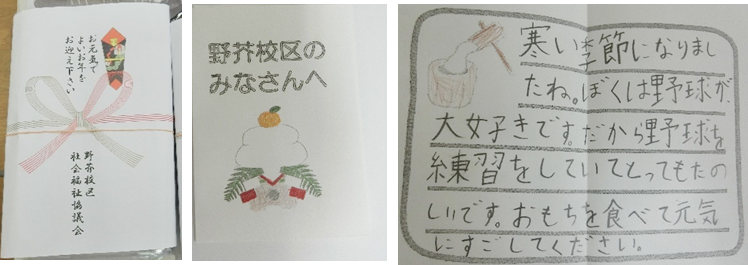 お元気で
よいお年を
お迎え下さい
野芥校区
社会福祉協議会
野芥校区の
みなさんへ
寒い季節になりまし
たね。ぼくは野球が、
大好きです。だから野球を
練習をしていてとってもたの
しいです。おもちを食べて元気
にすごしてください。